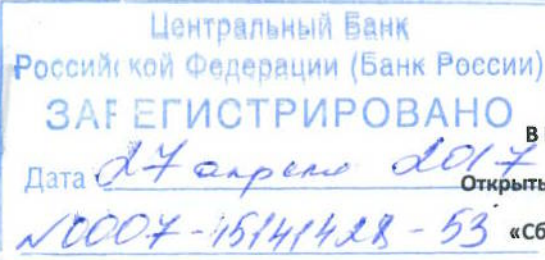 Центральный Банк
Российской Федерации (Банк России)
ЗАРЕГИСТРИРОВАНО
В
Дата 27 апреля 2017
Открыть
N0007-15141428-53 «Сб